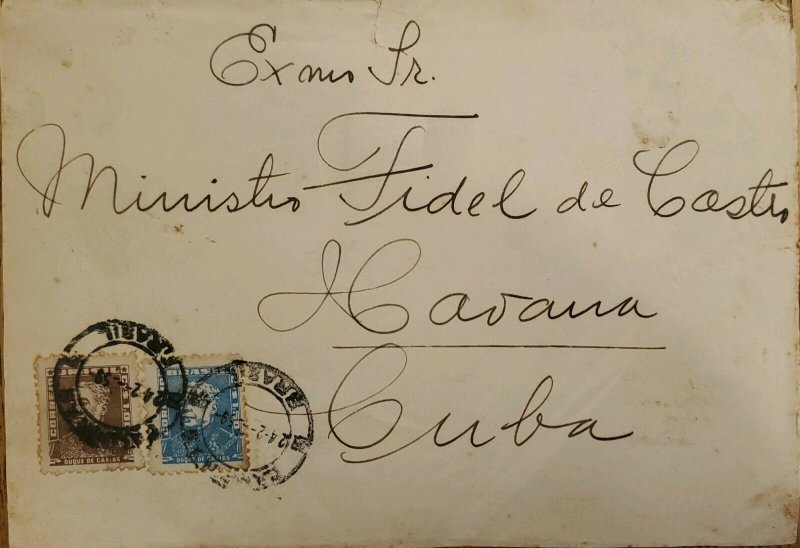 Exmo Sr.
Ministro Fidel de Castro
Havana
Cuba
CORREIO
DUQUE DE CAXIAS
DUQUE DE CAXIAS
BRASIL